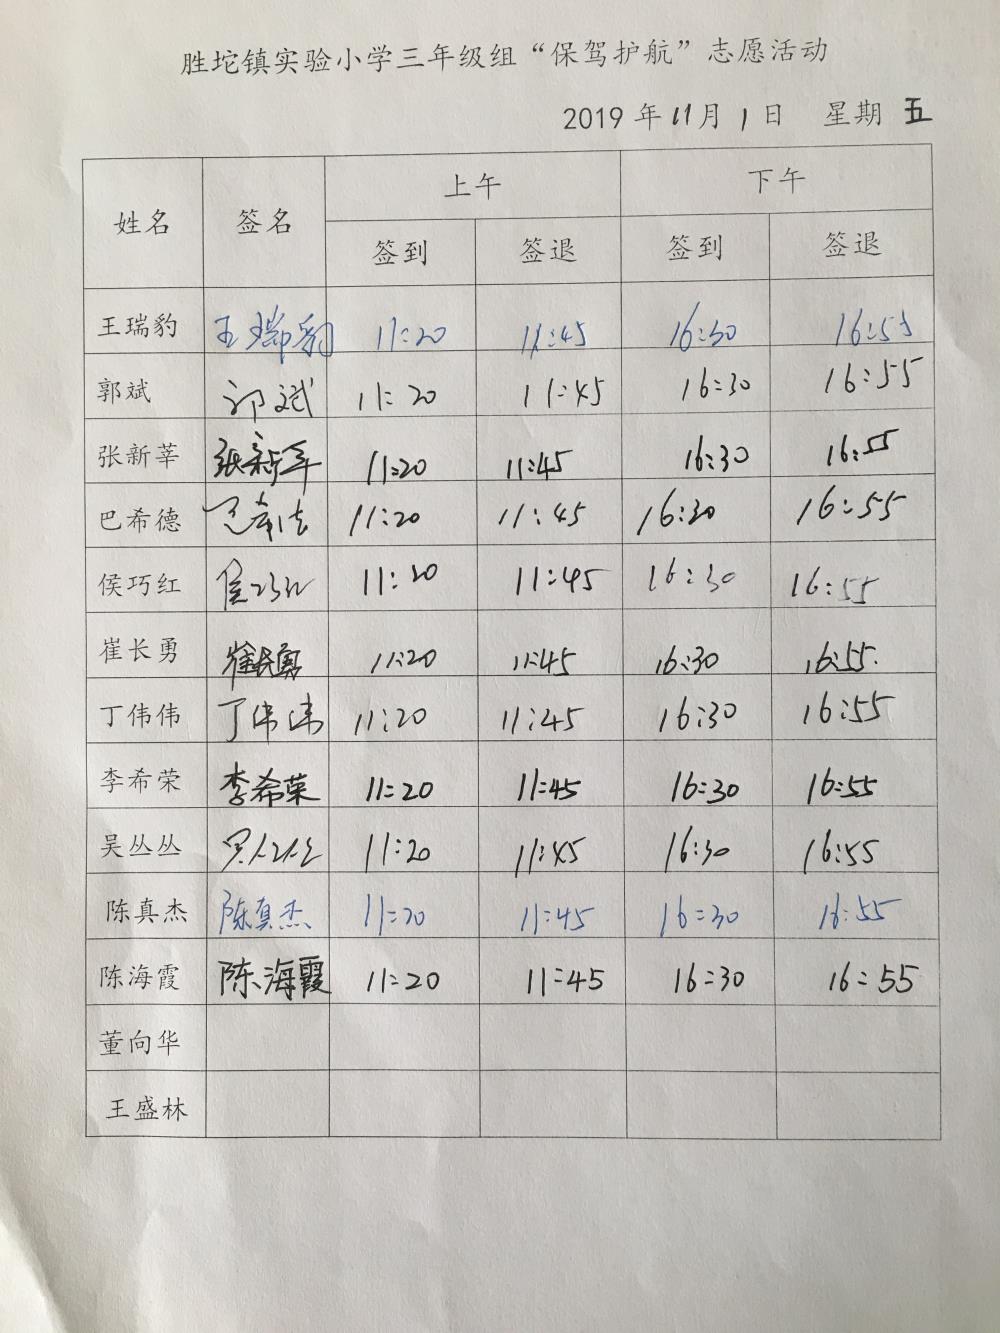 胜坨镇实验小学三年级组“保驾护航”志愿活动
2019年11月1日 星期五
姓名 签名 上午 下午
签到 签退 签到 签退
王瑞豹 王瑞豹 11:20 11:45 16:30 16:55
郭斌 郭斌 11:20 11:45 16:30 16:55
张新莘 张新莘 11:20 11:45 16:30 16:55
巴希德 巴希德 11:20 11:45 16:30 16:55
侯巧红 侯巧红 11:20 11:45 16:30 16:55
崔长勇 崔长勇 11:20 11:45 16:30 16:55
丁伟伟 丁伟伟 11:20 11:45 16:30 16:55
李希荣 李希荣 11:20 11:45 16:30 16:55
吴丛丛 吴丛丛 11:20 11:45 16:30 16:55
陈真杰 陈真杰 11:20 11:45 16:30 16:55
陈海霞 陈海霞 11:20 11:45 16:30 16:55
董向华
王盛林